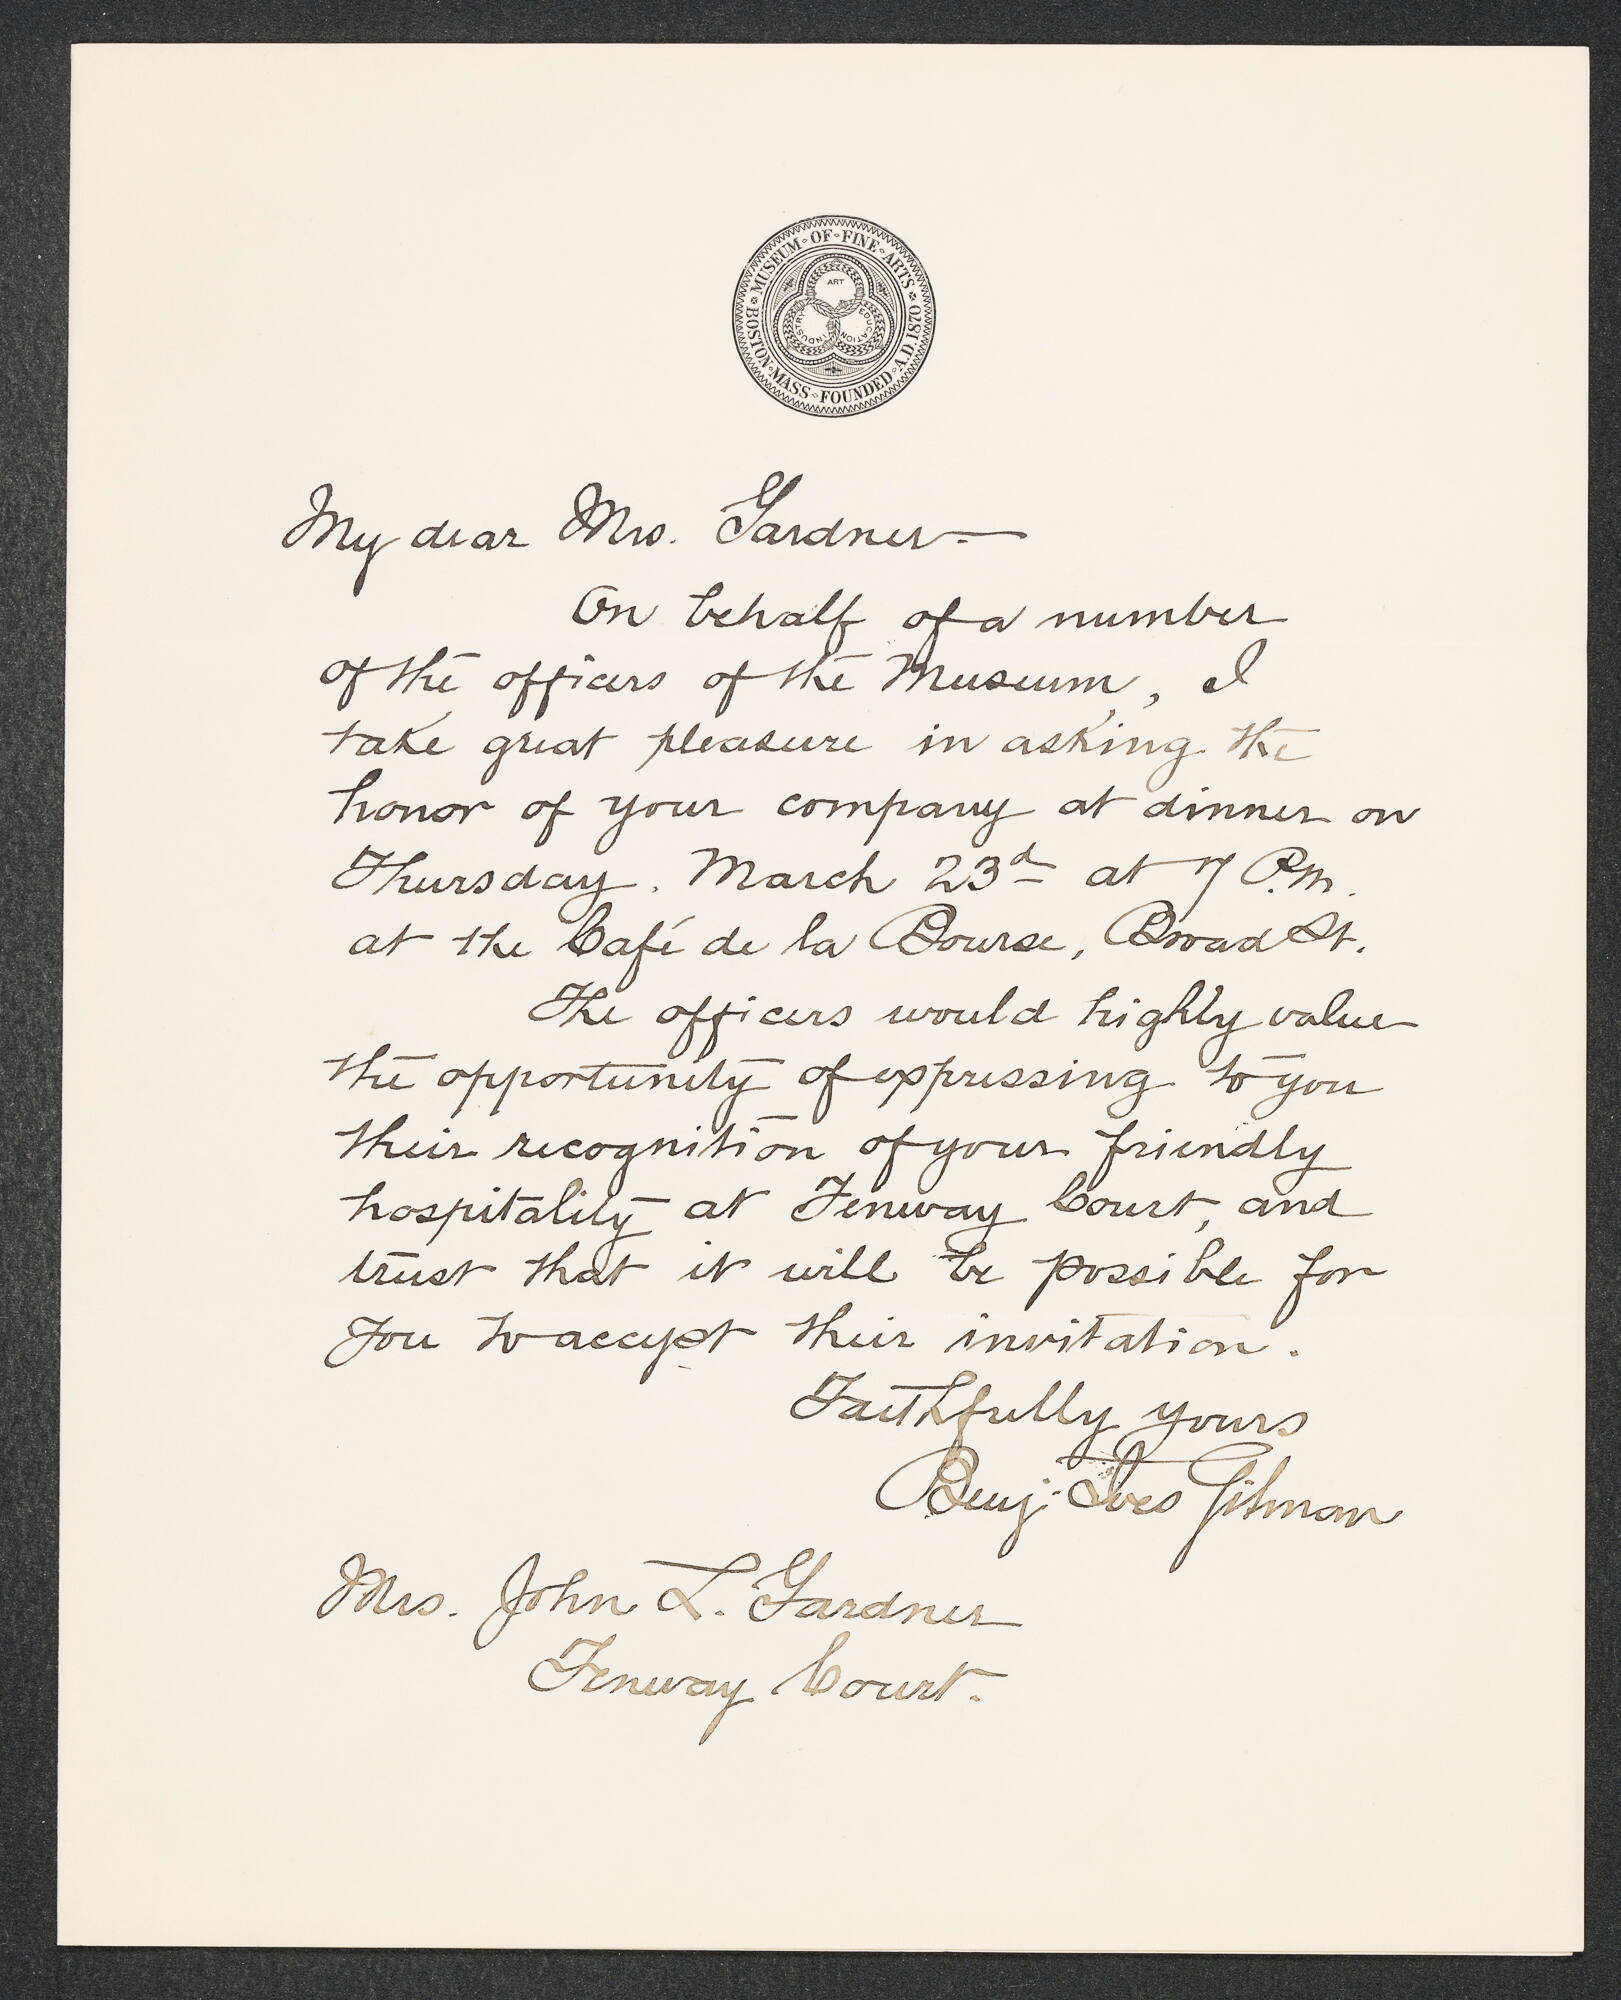 MUSEUM OF FINE ARTS A.D. 1870
BOSTON MASS FOUNDED
ART
INDUSTRY
EDUCATION
My dear Mrs. Gardner —
On behalf of a number
of the officers of the Museum, I
take great pleasure in asking the
honor of your company at dinner on
Thursday. March 23d at 7 P.M.
at the Café de la Bourse, Broad St.
The officers would highly value
the opportunity of expressing to you
their recognition of your friendly
hospitality at Fenway Court, and
trust that it will be possible for
you to accept their invitation.
Faithfully yours
Benj. Ives Gilman
Mrs. John L. Gardner
Fenway Court.